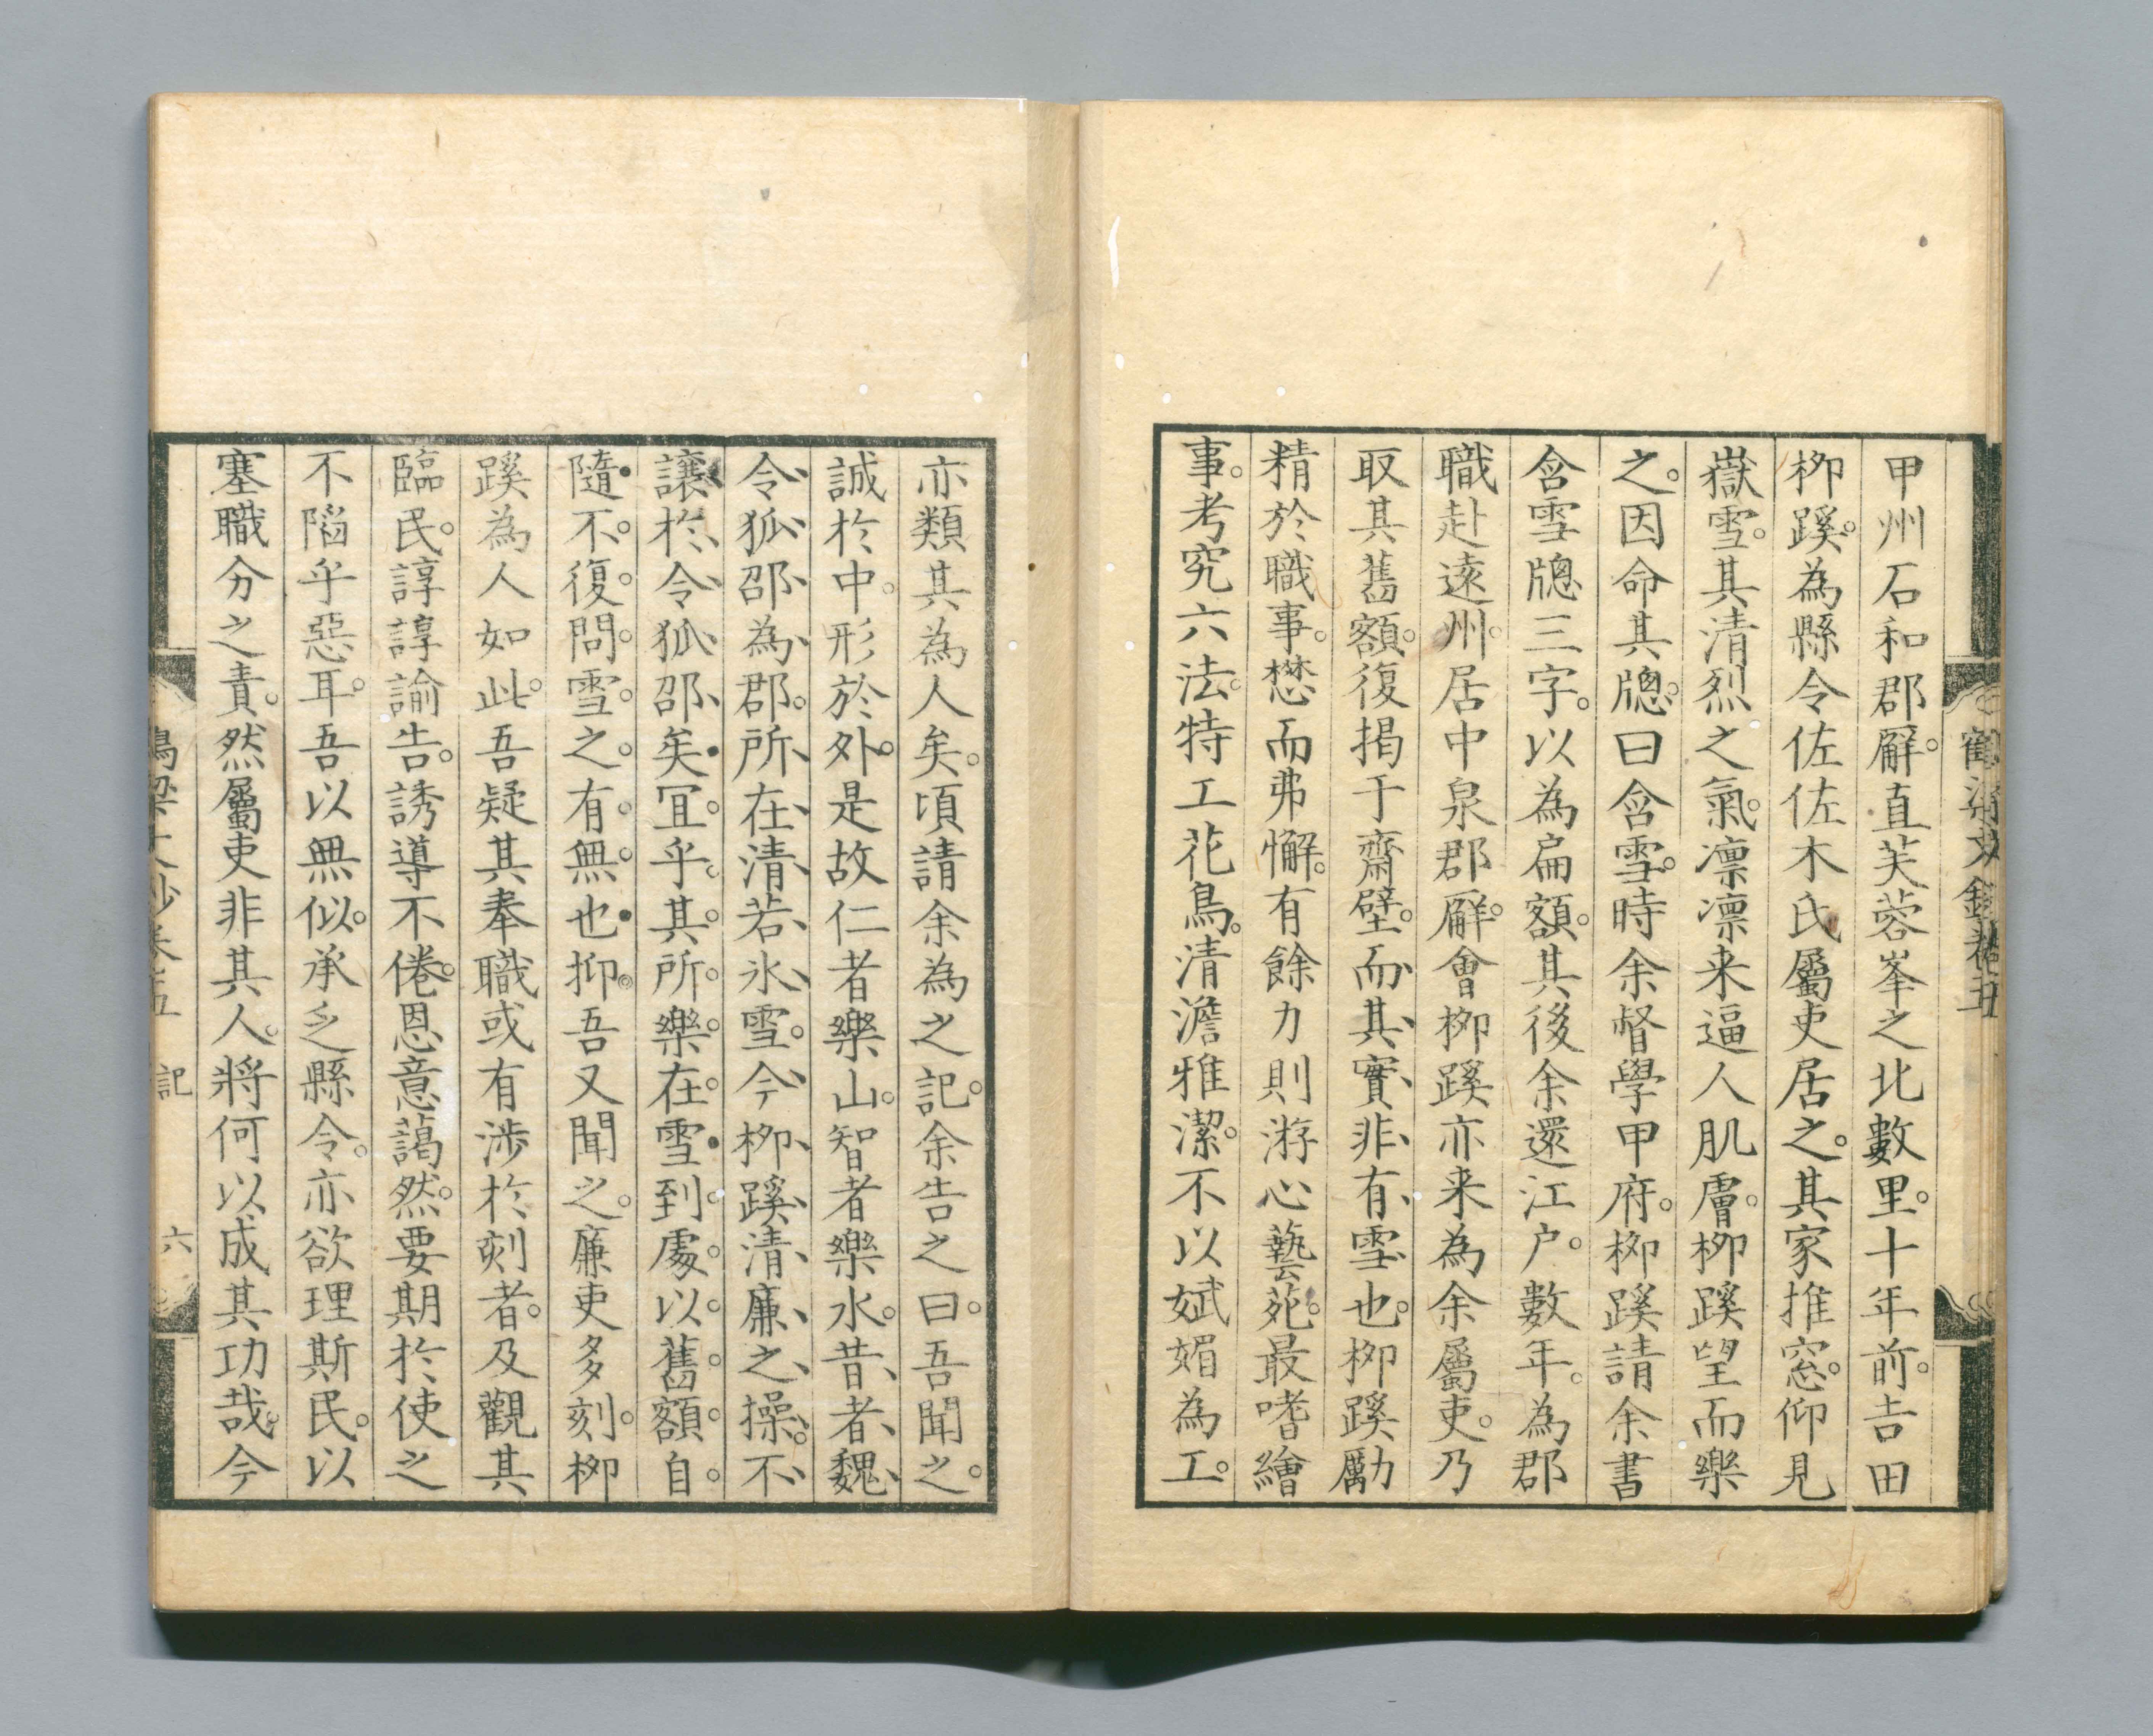 甲州石和郡廨。直芙蓉峯之北數里。十年前。吉田
柳蹊。為縣令佐佐木氏屬吏居之。其家推窓。仰見
嶽雪。其清烈之氣。凛凛来逼人肌膚。柳蹊望而樂
之。因命其牕。曰含雪。時余督學甲府。柳蹊請余書
含雪牕三字。以為扁額。其後余還江戶。數年。為郡
職赴遠州。居中泉郡廨。會柳蹊亦来為余屬吏。乃
取其舊額。復掲于齋壁。而其實非有雪也。柳蹊勵
精於職事。懋而弗懈。有餘力則游心藝苑。最嗜繪
事。考究六法。特工花鳥。清澹雅潔。不以斌媚為工。
亦類其為人矣。頃請余為之記。余告之曰。吾聞之。
誠於中。形於外。是故仁者樂山。智者樂水。昔者魏
令狐邵為郡。所在清若氷雪。今柳蹊清廉之操。不
讓於令狐邵矣。宜乎。其所樂在雪。到處以舊額自
隨。不復問雪之有無也。抑吾又聞之。廉吏多刻。柳
蹊為人如此。吾疑其奉職或有渉於刻者。及觀其
臨民。諄諄諭告。誘導不倦。恩意藹然。要期於使之
不陷乎惡耳。吾以無似。承乏縣令。亦欲理斯民。以
塞職分之責。然屬吏非其人。將何以成其功哉。今
記 六